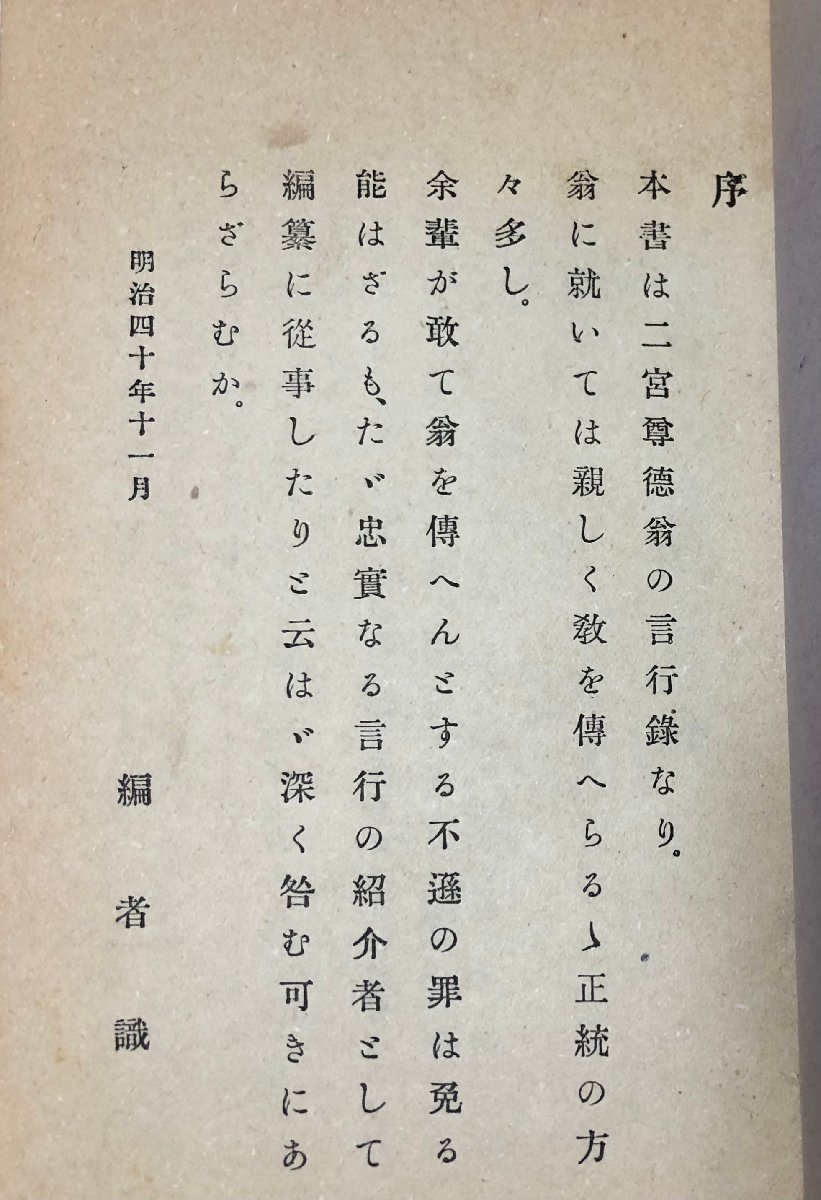 序
本書は二宮尊德翁の言行錄なり。
翁に就いては親しく敎を傳へらるゝ正統の方
々多し。
余輩が敢て翁を傳へんとする不遜の罪は免る
能はざるも、たゞ忠實なる言行の紹介者として
編纂に從事したりと云はゞ深く咎む可きにあ
らざらむか。
明治四十年十一月
編者識